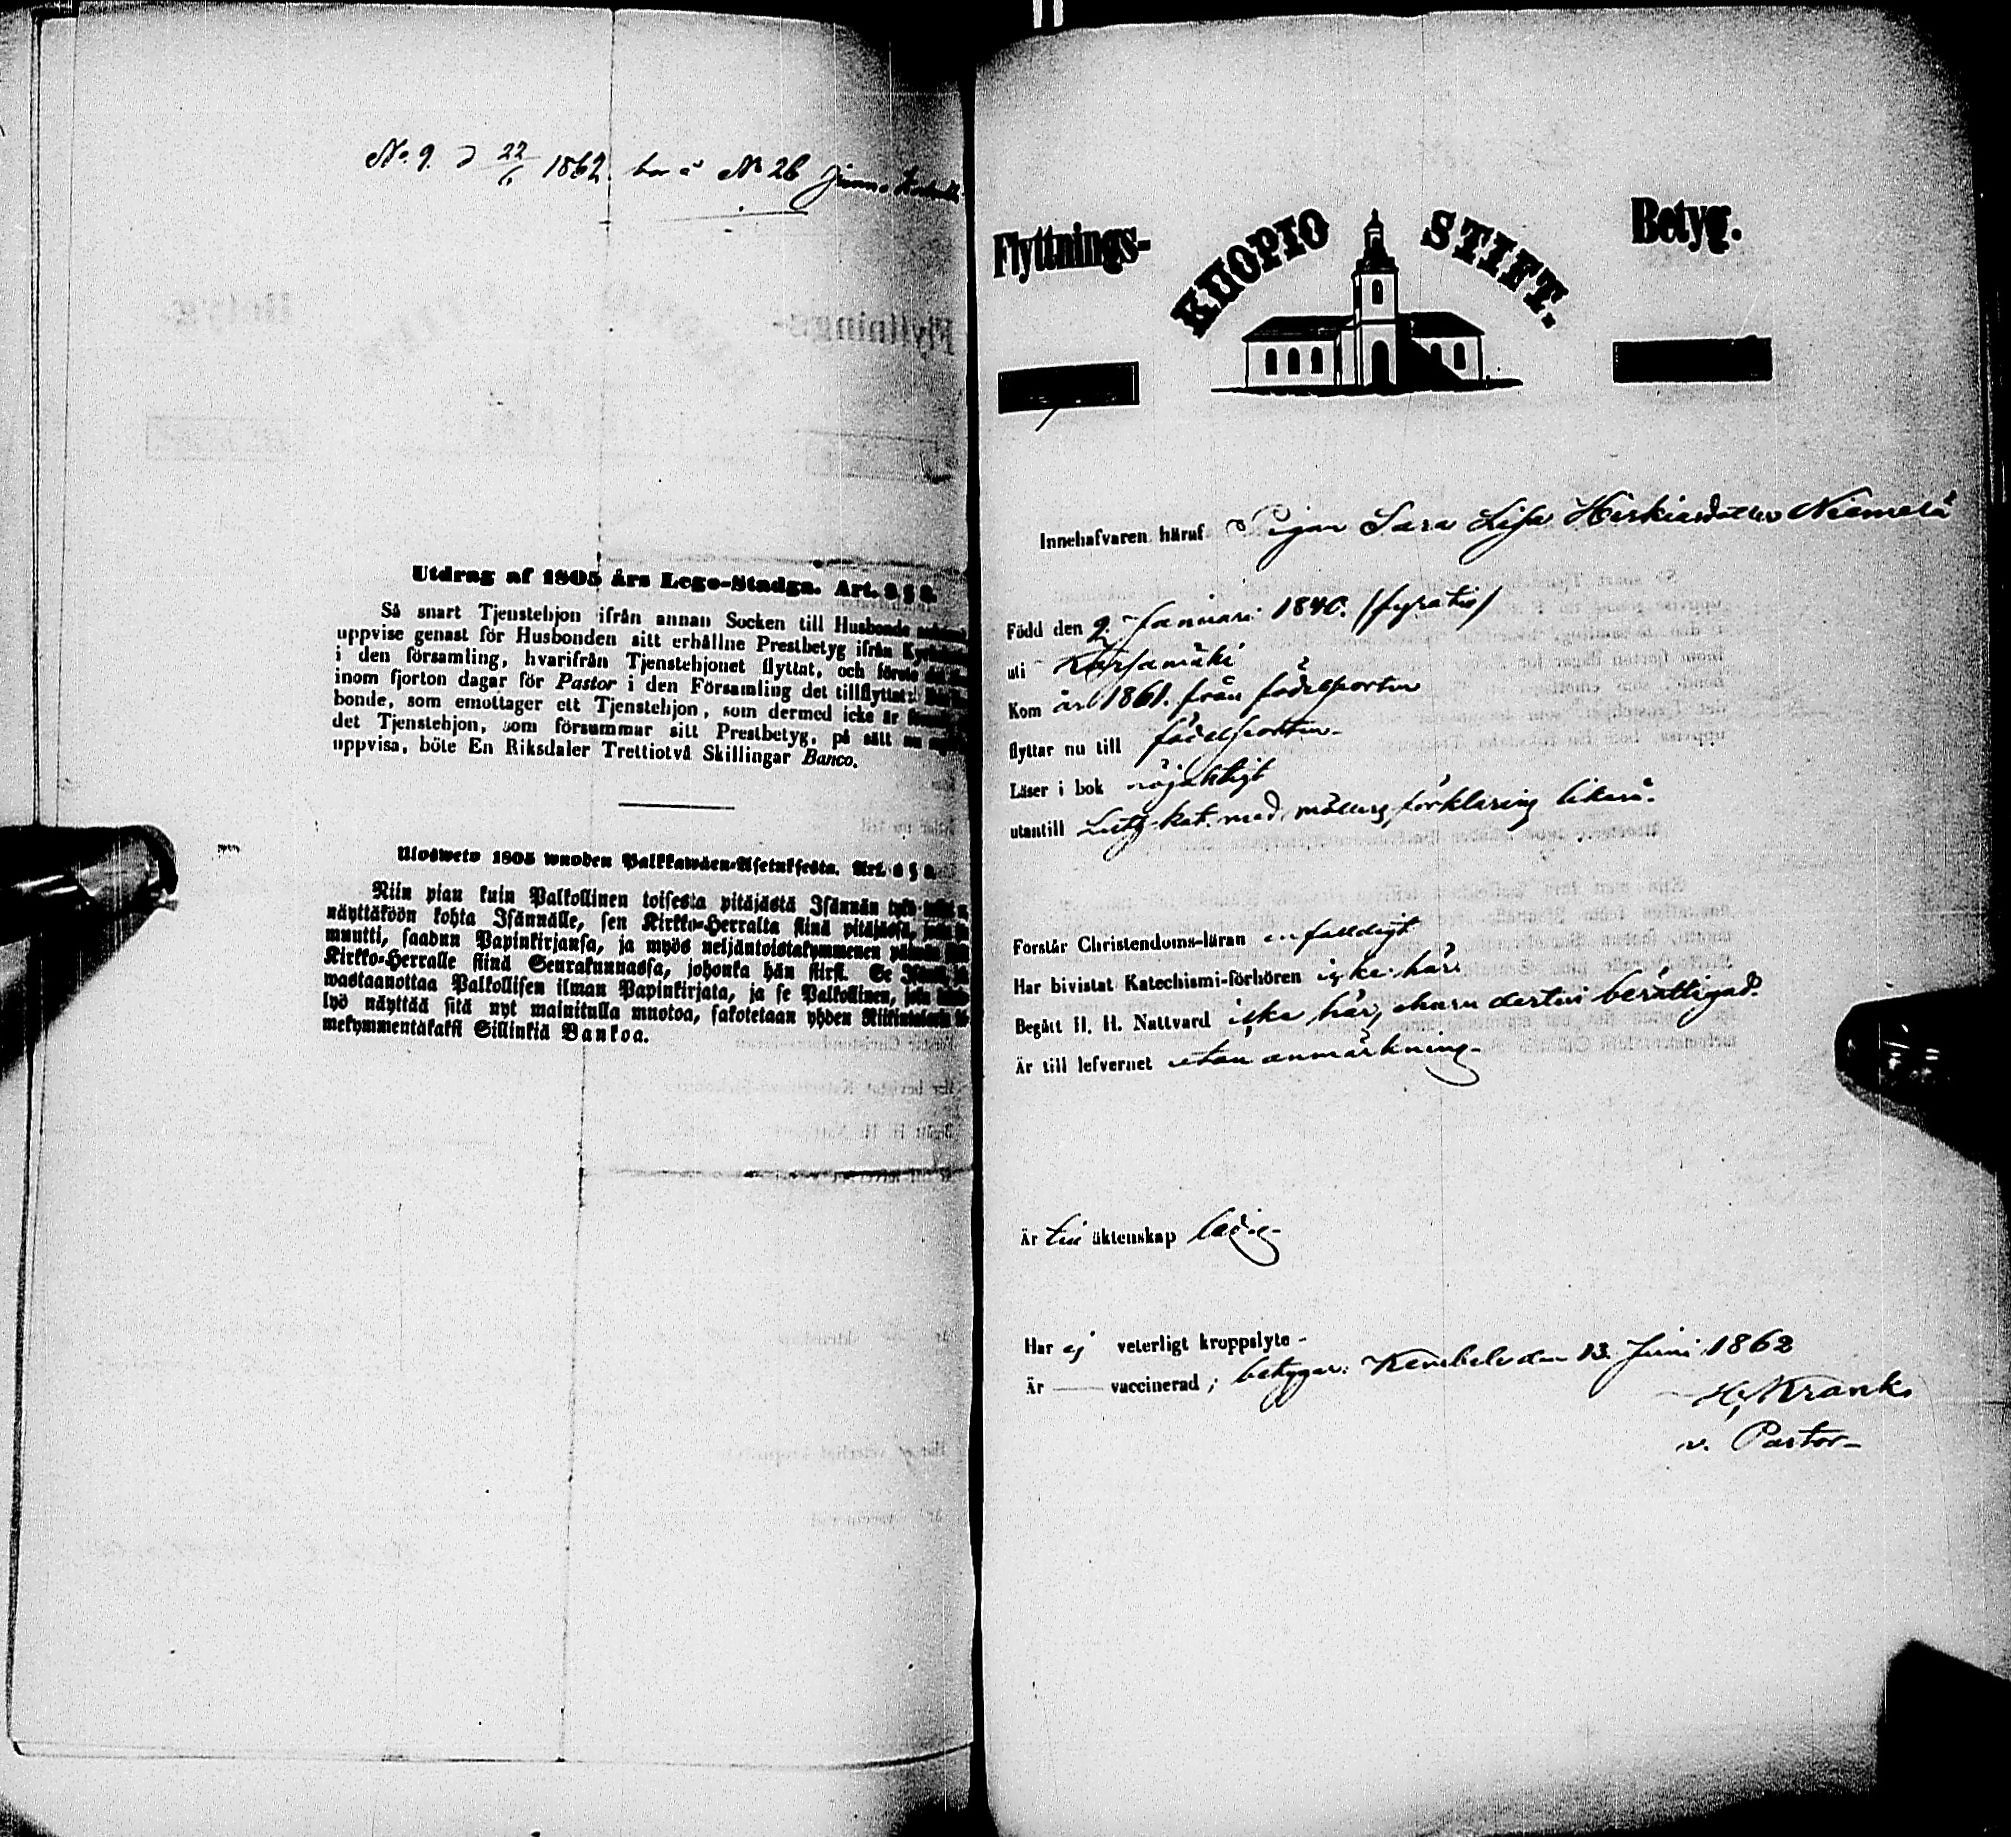 No 9. d 22/6 1862. bor å No 26
Utdrag af 1805 års Lego-Stadga. Art. 8 § 8.
Så snart Tjenstehjon ifrån annan Socken till Husbonde
uppvise genast för Husbonden sitt erhållne Prestbetyg ifrån
i den församling, hvarifrån Tjenstehjonet flyttat, och förete det
inom fjorton dagar för Pastor i den Församling det tillflyttat:
bonde, som emottager ett Tjenstehjon, som dermed icke är
det Tjenstehjon, som försummar sitt Prestbetyg, på sätt
uppvisa, böte En Riksdaler Trettiotvå Skillingar Banco.
Ulosweto 1805 wuoden Palkkawäen-Asetuksesta. Art. 8 § 8.
Niin pian kuin Palkollinen toisesta pitäjästä Isännän tykö
näyttäköön kohta Isännälle, sen Kirkko-Herralta siinä pitäjässä,
muutti, saadun Papinkirjansa, ja myös neljäntoistakymmenen päiwän
Kirkko-Herralle siinä Seurakunnassa, johonka hän siirsi. Se
wastaanottaa Palkollisen ilman Papinkirjata, ja se Palkollinen, joka
lyö näyttää sitä nyt mainitulla muotoa, sakotetaan yhden
mekymmentäkaksi Sillinkiä Bankoa.
Flyttnings- KUOPIO STIFT. Betyg.
Innehafvaren häraf Pigan Sara Lisa Heskiasdotter Niemelä
Född den 9. Januari 1840. /fyratio/
uti Kärsämäki
Kom år 1861. från födelseorten
flyttar nu till födelseorten-
Läser i bok nöjaktigt
utantill Luth. kat. med möllers förklaring likaså.
Forstår Christendoms-läran enfaldigt
Har bivistat Katechismi-förhören icke här
Begått H. H. Nattvard icke här, ehuru dertill berättigad.
Är till lefvernet utan anmärkning-
Är till äktenskap ledig-
Har ej veterligt kroppslyte -
Är — vaccinerad; betygar: Kembele den 13. Juni 1862
H. Krank
v. Pastor-